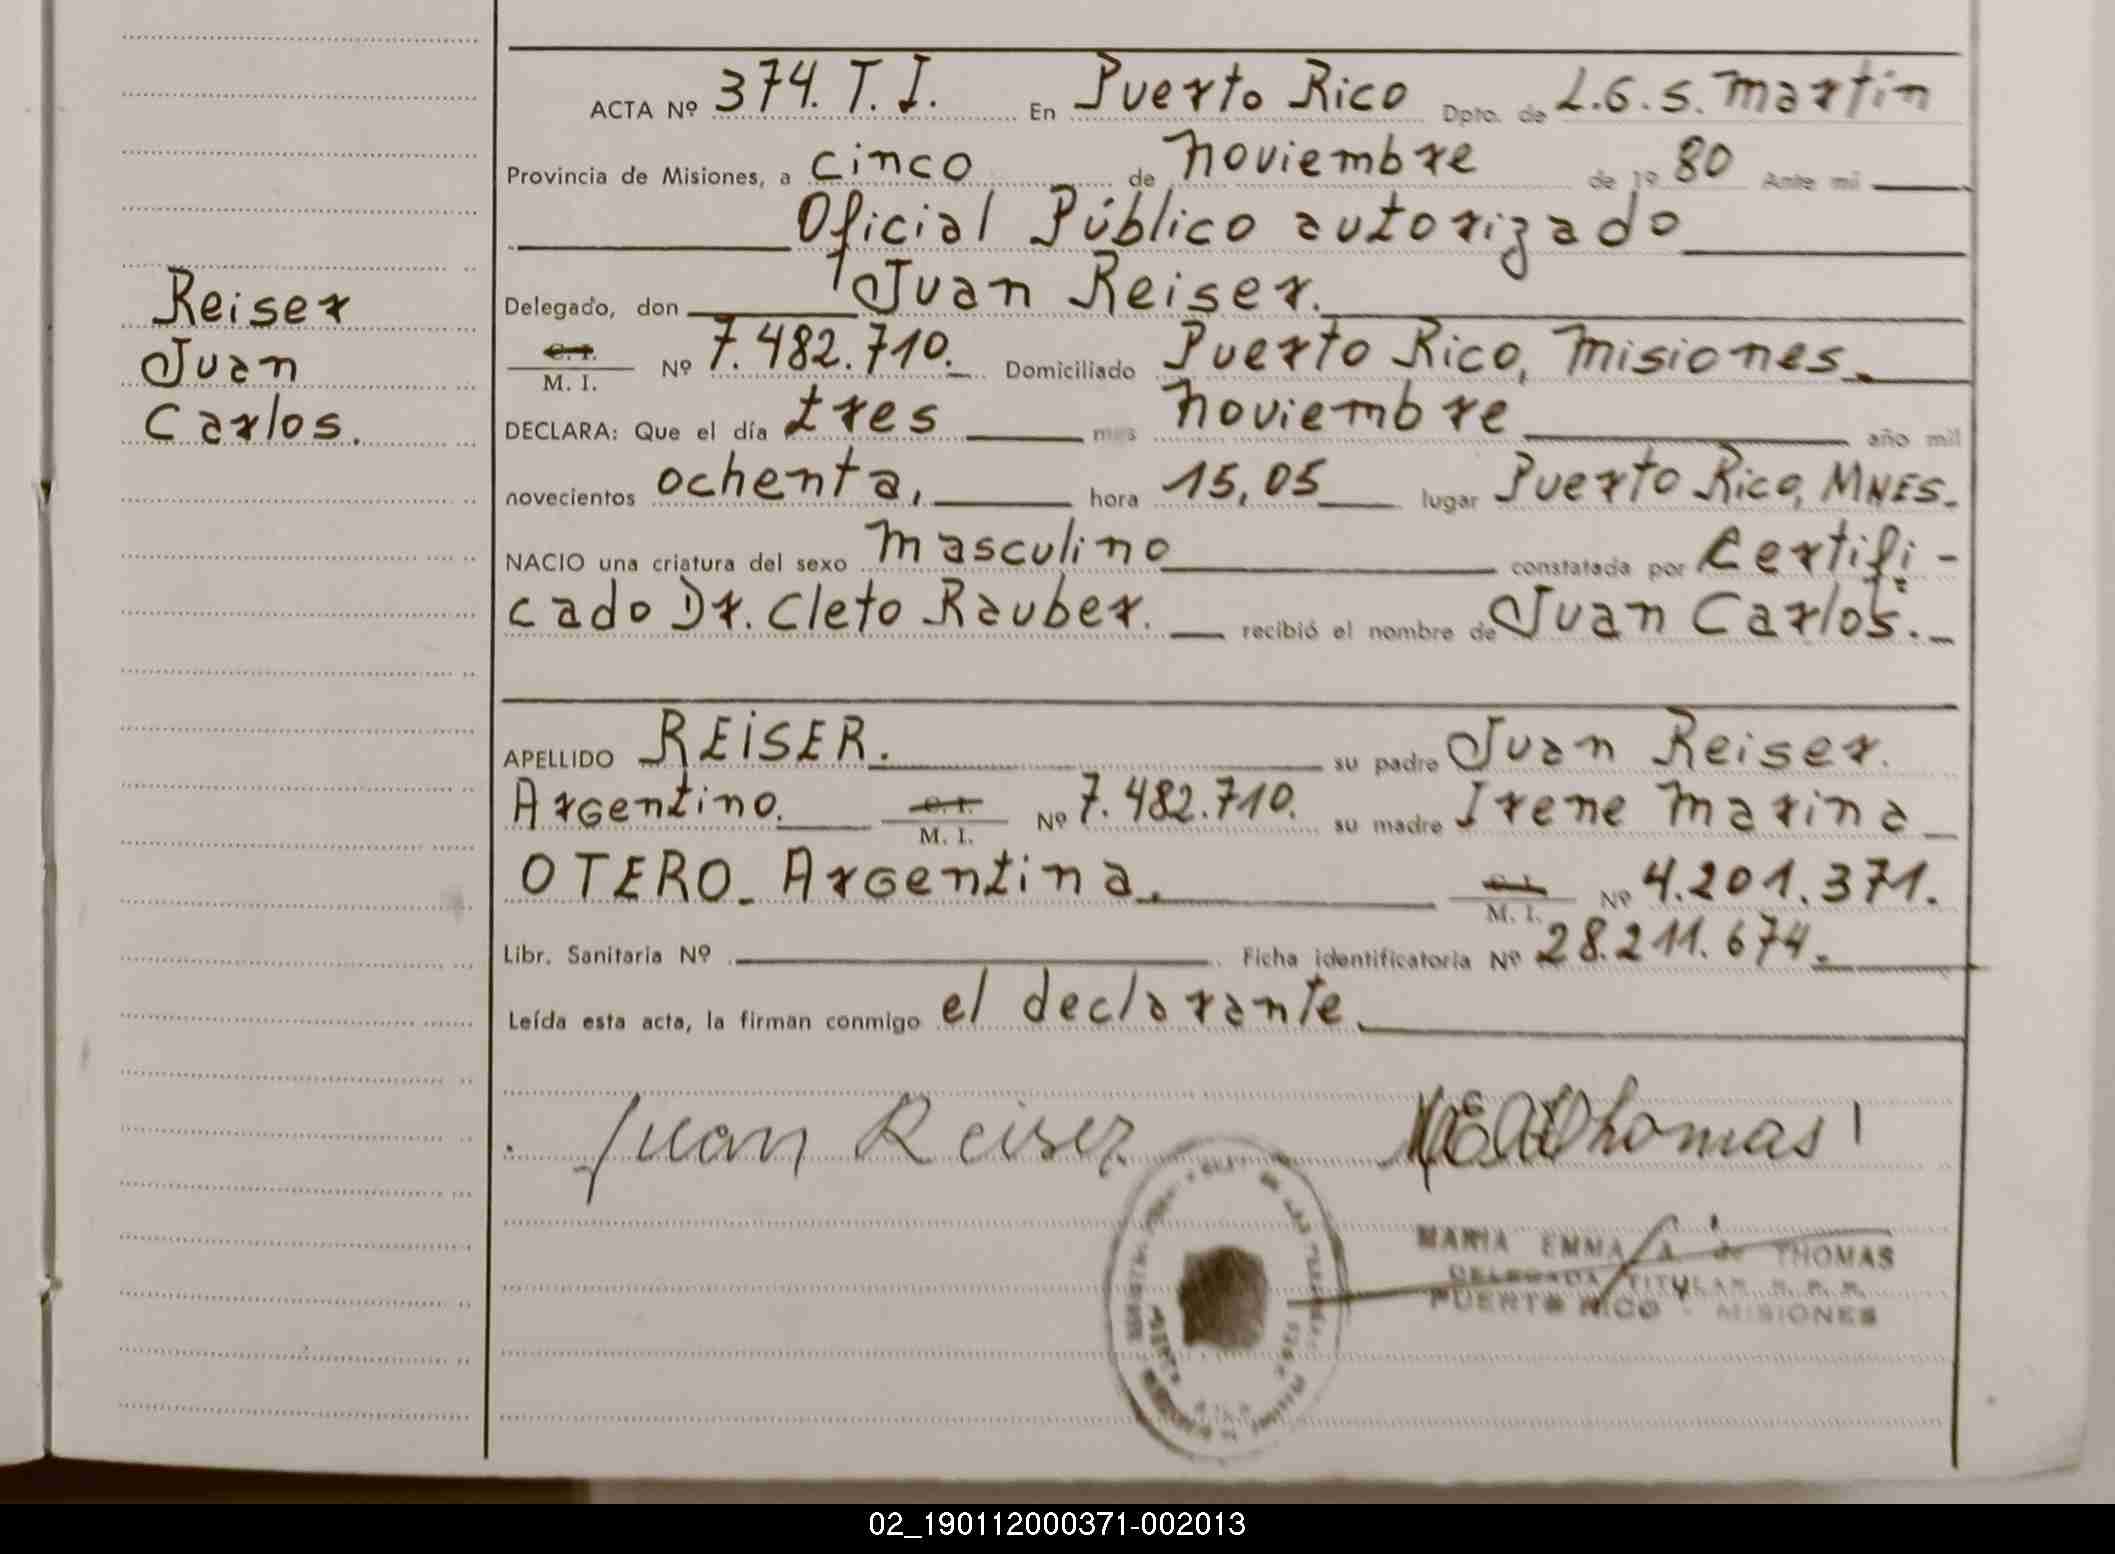 ACTA Nº 374. T. I. En Puerto Rico Dpto. de L.G.S. Martín
Provincia de Misiones, a cinco de Noviembre de 19 80 Ante mi
Oficial Público autorizado
Delegado, don Juan Reiser.
C. I. M. I. Nº 7.482.710. Domiciliado Puerto Rico, Misiones.
DECLARA: Que el día tres mes Noviembre año mil
novecientos ochenta, hora 15,05 lugar Puerto Rico, MNES.
NACIO una criatura del sexo Masculino constatada por Certifi-
cado Dr. Cleto Rauber. recibió el nombre de Juan Carlos.
Reiser
Juan
Carlos.
APELLIDO REISER. su padre Juan Reiser.
Argentino. C. I. M. I. Nº 7.482.710. su madre Irene Marina
OTERO. Argentina. C. I. M. I. Nº 4.201.371.
Libr. Sanitaria Nº Ficha identificatoria Nº 28.211.674.
Leída esta acta, la firman conmigo el declarante.
Juan Reiser Thomas
MARIA EMMA A. de THOMAS
DELEGADA TITULAR
PUERTO RICO - MISIONES
02_190112000371-002013